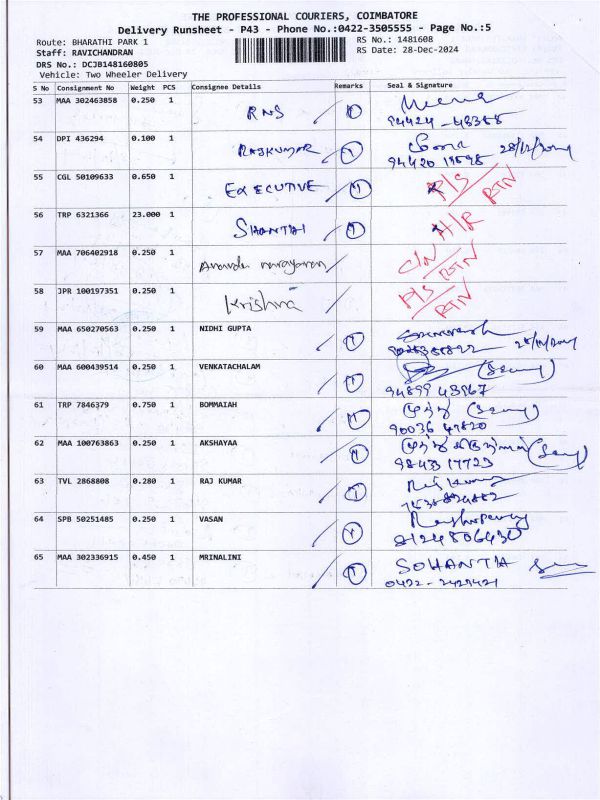 THE PROFESSIONAL COURIERS, COIMBATORE
Delivery Runsheet - P43 - Phone No.:0422-3505555 - Page No.:5
Route: BHARATHI PARK 1 RS No.: 1481608
Staff: RAVICHANDRAN RS Date: 28-Dec-2024
DRS No.: DCJB148160805
Vehicle: Two Wheeler Delivery
S No Consignment No Weight PCS Consignee Details Remarks Seal & Signature
53 MAA 302463858 0.250 1 RNS Meena
94424-48388
54 DPI 436294 0.100 1 RAJKUMAR 28/12/2024
55 CGL 50109633 0.650 1 EXECUTIVE P/S
RTN
56 TRP 6321366 23.000 1 SHANTHI H/R
57 MAA 706402918 0.250 1 C/N
RTN
58 JPR 100197351 0.250 1 Krishna P/S
RTN
59 MAA 650270563 0.250 1 NIDHI GUPTA 28/12/2024
60 MAA 600439514 0.250 1 VENKATACHALAM
94899 43967
61 TRP 7846379 0.750 1 BOMMAIAH
90036 47820
62 MAA 100763863 0.250 1 AKSHAYAA
98433 17723
63 TVL 2868808 0.280 1 RAJ KUMAR
64 SPB 50251485 0.250 1 VASAN
8124806430
65 MAA 302336915 0.450 1 MRINALINI SOHANTHA
0422-2429421